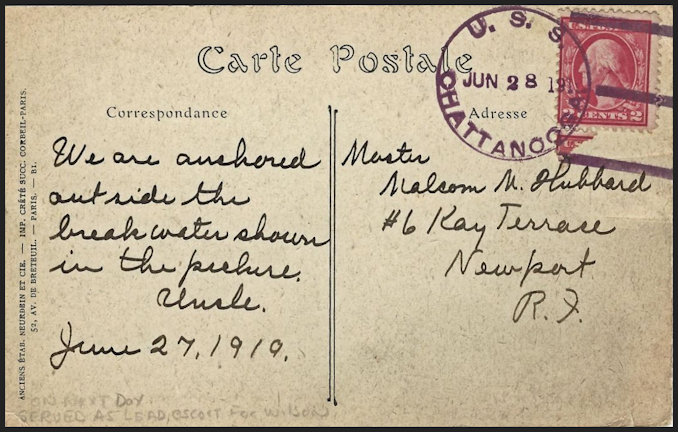 Carte Postale
Correspondance
Adresse
U. S. S.
JUN 28 19
CHATTANOOGA
U.S. POST
2 CENTS 2
We are anchored
outside the
breakwater shown
in the picture.
Uncle.
June 27, 1919.
Master
Malcom M. Hubbard
#6 Kay Terrace
Newport
R. I.
ANCIENS ÉTAB. NEURDEIN ET CIE. — IMP. CRÉTÉ SUCC. CORBEIL-PARIS.
52, AV. DE BRETEUIL. — PARIS. — B1.
ON NEXT DAY
SERVED AS LEAD, ESCORT FOR WILSON